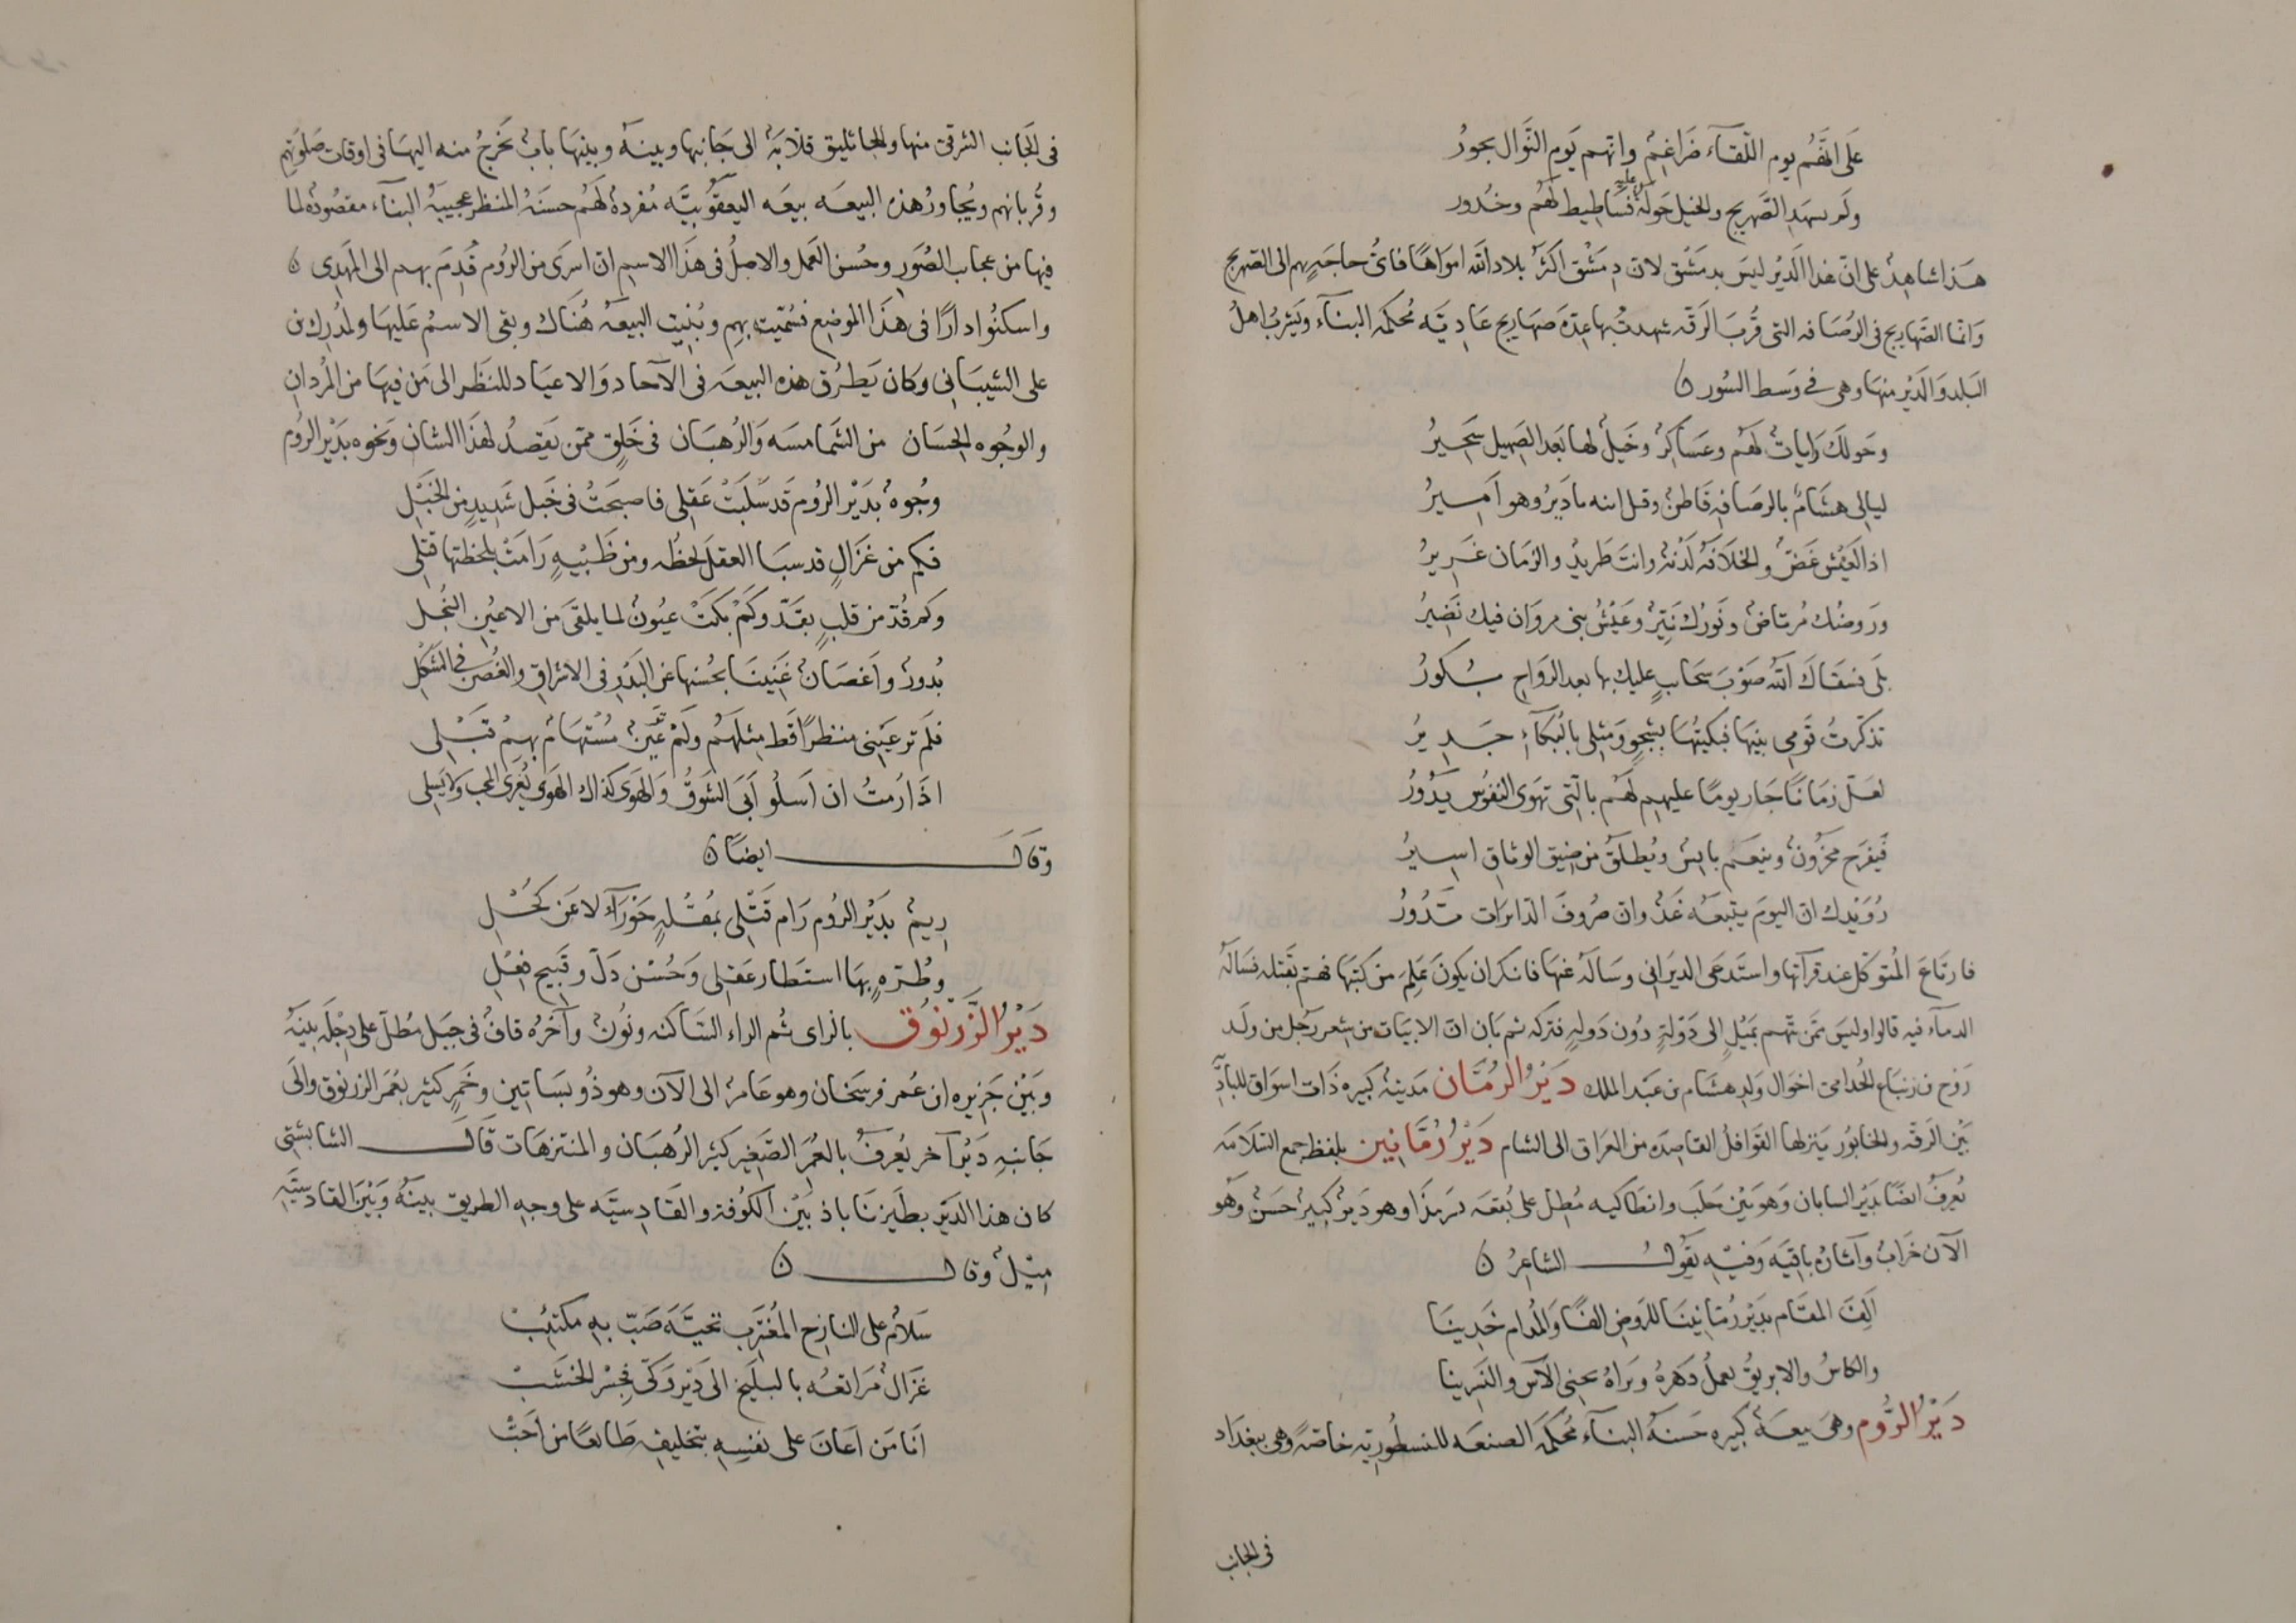 على انهم يوم اللقآء ضراغم وانهم يوم النوال بحور
ولم يشهد الصهريج والخيل حوله عليه فساطيط لهم وخدور
هذا شاهد على ان هذا الدير ليس بدمشق لان دمشق اكثر بلاد الله امواها فاى حاجةٍ بهم الى الصهريج
وانما الصهاريج فى الرصافه التى قرب الرقه شهدت بها عدة صهاريج عاديه محكمة البنآء ويشرب اهل
البلد والدير منها وهى فى وسط السور ن
وحولك رايات لهم وعساكر وخيل لها بعد الصهيل سحير
ليالى هشام بالرصافه قاطن وفيك ابنه يا دير وهو امير
اذ العيش غض والخلافة لدنة وانت طريد والزمان غرير
وروضك مرتاض ونورك نير وعيش بنى مروان فيك نضير
بلى فسقاك الله صوب سحاب عليك بها بعد الرواح بكور
تذكرت قومى بينها فبكيتها بشجو ومثلى بالبكآء جدير
لعل زمانا جار يوما عليهم لهم بالتى تهوى النفوس يدور
فيفرح محزون وينعم بائس ويطلق من ضيق الوثاق اسير
رويدك ان اليوم يتبعه غد وان صروف الدائرات تدور
فارتاع المتوكل عند قرآتها واستدعى الديرانى وساله عنها فانكر ان يكون علم من كتبها فهم بقتله فساله
الندمآء فيه قالوا وليس ممن تتهم بميل الى دولةٍ دون دولةٍ فتركه ثم بان ان الابيات من شعر رجل من ولد
روح بن زنباع الجذامى اخوال ولد هشام بن عبد الملك دير الرمان مدينة كبيره ذات اسواق للبادية
بين الرقه والخابور ينزلها القوافل القاصده من العراق الى الشام دير رمانين بلفظ جمع السلامه
يعرف ايضا بدير السابان وهو بين حلب وانطاكيه مطل على بقعه سرمدا وهو دير كبير حسن وهو
الآن خراب وآثاره باقيه وفيه يقول الشاعر ن
الف المقام بدير رمانينا للروض الفا والمدام خدينا
والكاس والابريق يعمل دهره وتراه يجنى الآس والنسرينا
دير الروم وهى بيعة كبيره حسنة البنآء محكمة الصنعه للنسطوريه خاصة وهى ببغداد
فى الجانب
فى الجانب الشرقى منها وللجاثليق قلاية الى جانبها وبينه وبينها باب يخرج منه اليها فى اوقات صلوتهم
وقربانهم ويجاور هذه البيعه بيعه اليعقوبيه مفردة لهم حسنة المنظر عجيبة البنآء مقصوده لما
فيها من عجايب الصور وحسن العمل والاصل فى هذا الاسم ان اسرى من الروم قدم بهم الى المهدى ن
واسكنوا دارا فى هذا الموضع فسميت بهم وبنيت البيعة هناك وبقى الاسم عليها ولمدرك بن
على الشيبانى وكان يطرق هذه البيعه فى الآحاد والاعياد للنظر الى من فيها من المردان
والوجوه الحسان من الشمامسه والرهبان فى خلق ممن يقصد لهذا الشان ونحوه بدير الروم
وجوه بدير الروم قد سلبت عقلى فاصبحت فى خبل شديد من الخبل
فكم من غزال قد سبا العقل لحظه ومن ظبيه رامت بلحظتها قتلى
وكم قد من قلب بقد وكم بكت عيون لما يلقى من الاعين النجل
بدور واغصان غنينا بحسنها عن البدر فى الاشراق والغصن فى الشكل
فلم تر عينى منظرا قط مثلهم ولم تر عين مستهام بهم قبلى
اذا رمت ان اسلو ابى الشوق والهوى كذاك الهوى يغرى المحب ولا يسلى
وقال ايضا ن
ريم بدير الروم رام قتلى بمقلة حورآء لا عن كحل
وطرة بها استطار عقلى وحسن دل وقبيح فعل
دير الزرنوق بالزاى ثم الراء الساكنه ونون وآخره قاف فى جبل مطل على دجلة بينه
وبين جزيره ابن عمر فرسخان وهو عامر الى الآن وهو ذو بساتين وخمر كثير بعمر الزرنوق والى
جانبه دير آخر يعرف بالعمر الصغير كثير الرهبان والمنتزهات قال الشابشتى
كان هذا الدير بطيزناباذ بين الكوفة والقادسيه على وجه الطريق بينه وبين القادسيه
ميل وقال ن
سلام على النازح المغترب تحية صب به مكتئب
غزال مراتعه بالبليخ الى دير زكى فجسر الخشب
انا من اعان على نفسه بتخليفه طايعا من احب